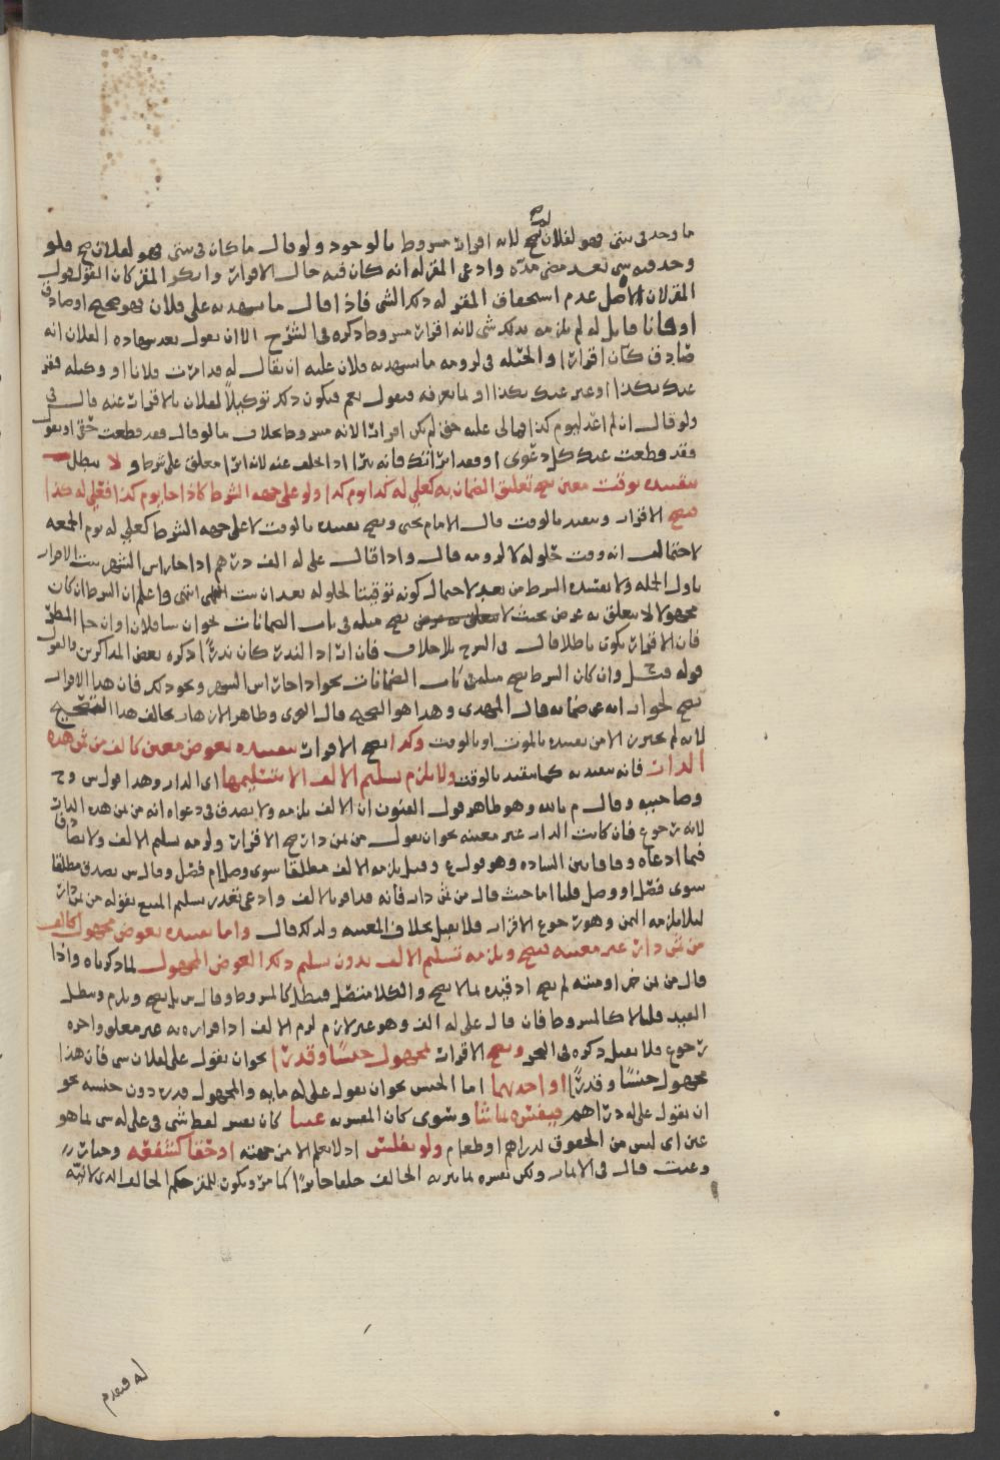 ما وجد في بيتي فهو لفلان لم يصح لانه اقرار مشروط بالوجود ولو قال ما كان في بيتي فهو لفلان صح فلو
وجد فيه شي بعد مضي مدة وادعى المقر له انه كان فيه حال الاقرار وانكر المقر كان القول قول
المقر لان الاصل عدم استحقاق المقر له ذلك الشي فاذا قال ما شهد به علي فلان فهو صحيح او صادق
او قائل له لم يلزمه بذلك شي لانه اقرار مشروط ذكره في الشرح الا ان يقول بعد شهادة الفلان انه
صادق كان اقرارا والحيلة في لزومه ما شهد به فلان عليه ان يقال له قد امرت فلانا او وكيله فقر
عنك بكذا او عبر عنك بكذا او بما يعرفه فيقول نعم فيكون ذلك توكيلا لفلان بالاقرار عنه قال في
ولو قال ان لم اغد اليوم كذا فمالي عليه حق لم يكن اقرارا لانه مشروط بخلاف ما لو قال فقد قطعت حقي او يقول
فقد قطعت عنك كل دعوى او فقد ابراتك فانه يبرا اذا تخلف عنه لان ابرا معلق على شرط و لا يبطل
بتقييده بوقت معين صح تعليق الضمان به كعلي له كذا يوم كذا ولو على جهة الشرط كاذا جا يوم كذا فعلي له كذا
فيصح الاقرار ويتقيد بالوقت قال الامام يحيى ويصح تقييده بالوقت لا على جهة الشرط كعلي له يوم الجمعة
لاحتمال انه وقت حلوله لا لزومه قال واذا قال علي له الف درهم اذا جا راس الشهر ثبت الاقرار
باول الجملة ولا يفسده الشرط من بعد لاحتمال كونه توقيتا لحلوله بعد ان ثبت انتهى واعلم ان الشرط ان كان
مجهولا لا يتعلق به غرض بحيث لا يصح مثله في باب الضمانات نحو ان ساق فلان او ان جا المطر
فان الاقرار يكون باطلا قال في الشرح بلا خلاف فان اراد النذر كان نذرا ذكره بعض المذاكرين والقول
قوله وان كان الشرط يصح مثله في باب الضمانات نحو اذا جا راس الشهر ونحو ذلك فان هذا الاقرار
يصح لجواز انه عن ضمانه قال المهدي وهذا هو الصحيح قال وظاهر الازهار يخالف هذا التصحيح
لانه لم يحترز الا من تقييده بالموت او بالوقت وكذا يصح الاقرار بتقييده بعوض معين كالف من ثمن هذه
الدار فانه يتقيد به كما يتقيد بالوقت ولا يلزم تسليم الالف الا بتسليمها اي الدار وهذا قول س وح
وصاحبيه وقال م بالله وهو ظاهر قول العيون ان الالف يلزمه ولا يصدق في دعواه انه من ثمن هذه الدار
لانه رجوع فان كانت الدار غير معينة نحو ان يقول من ثمن دار صح الاقرار ولزمه تسليم الالف ولا يصادق
فيما ادعاه وفاقا بين السادة وهو قول ع وقيل يلزمه الالف مطلقا سوى وصل ام فصل وقال س يصدق مطلقا
سوى فصل او وصل قلنا اما حيث قال من ثمن دار فانه قد اقر بالالف وادعى تعذر تسليم المبيع بقوله من ثمن دار
لئلا يلزمه الثمن وهو رجوع الاقرار فلا يقبل بخلاف المعينة ولذلك قال واما تقييده بعوض مجهول كالف
من ثمن دار غير معينة فيصح ويلزمه تسليم الالف بدون تسليم ذلك العوض المجهول لما ذكرناه واذا
قال من ثمن خمر او ميتة لم يصح اذ قيده بما لا يصح والكلام متصل فبطل كالمشروط وقال س بل يصح ويلزم ويبطل
القيد قلنا لا كالمشروط فان قال علي له الف وهو غير لازم لزم الالف اذ اقراره به غير معلق واخره
رجوع فلا يقبل ذكره في البحر ويصح الاقرار بمجهول جنسا وقدرا نحو ان يقول علي لفلان شي فان هذا
مجهول جنسا وقدرا او احدهما اما الجنس نحو ان يقول علي له مايه والمجهول قدره دون جنسه نحو
ان يقول علي له دراهم فيفسره بما شا وسوى كان المفسر به عينا كان يفسر لفظ شي في علي له شي بما هو
عين اي ليس من الحقوق كدراهم او طعام ولو بفلس اذ لا يعلم الا من جهته او حقا كشفعة وخيار
وعيب قال في الاثمار ولكن تفسيره بما يبر به الحالف حلفا جائزا كما مر ويكون للمقر حكم الحالف الذي لا نية
له فيقدم